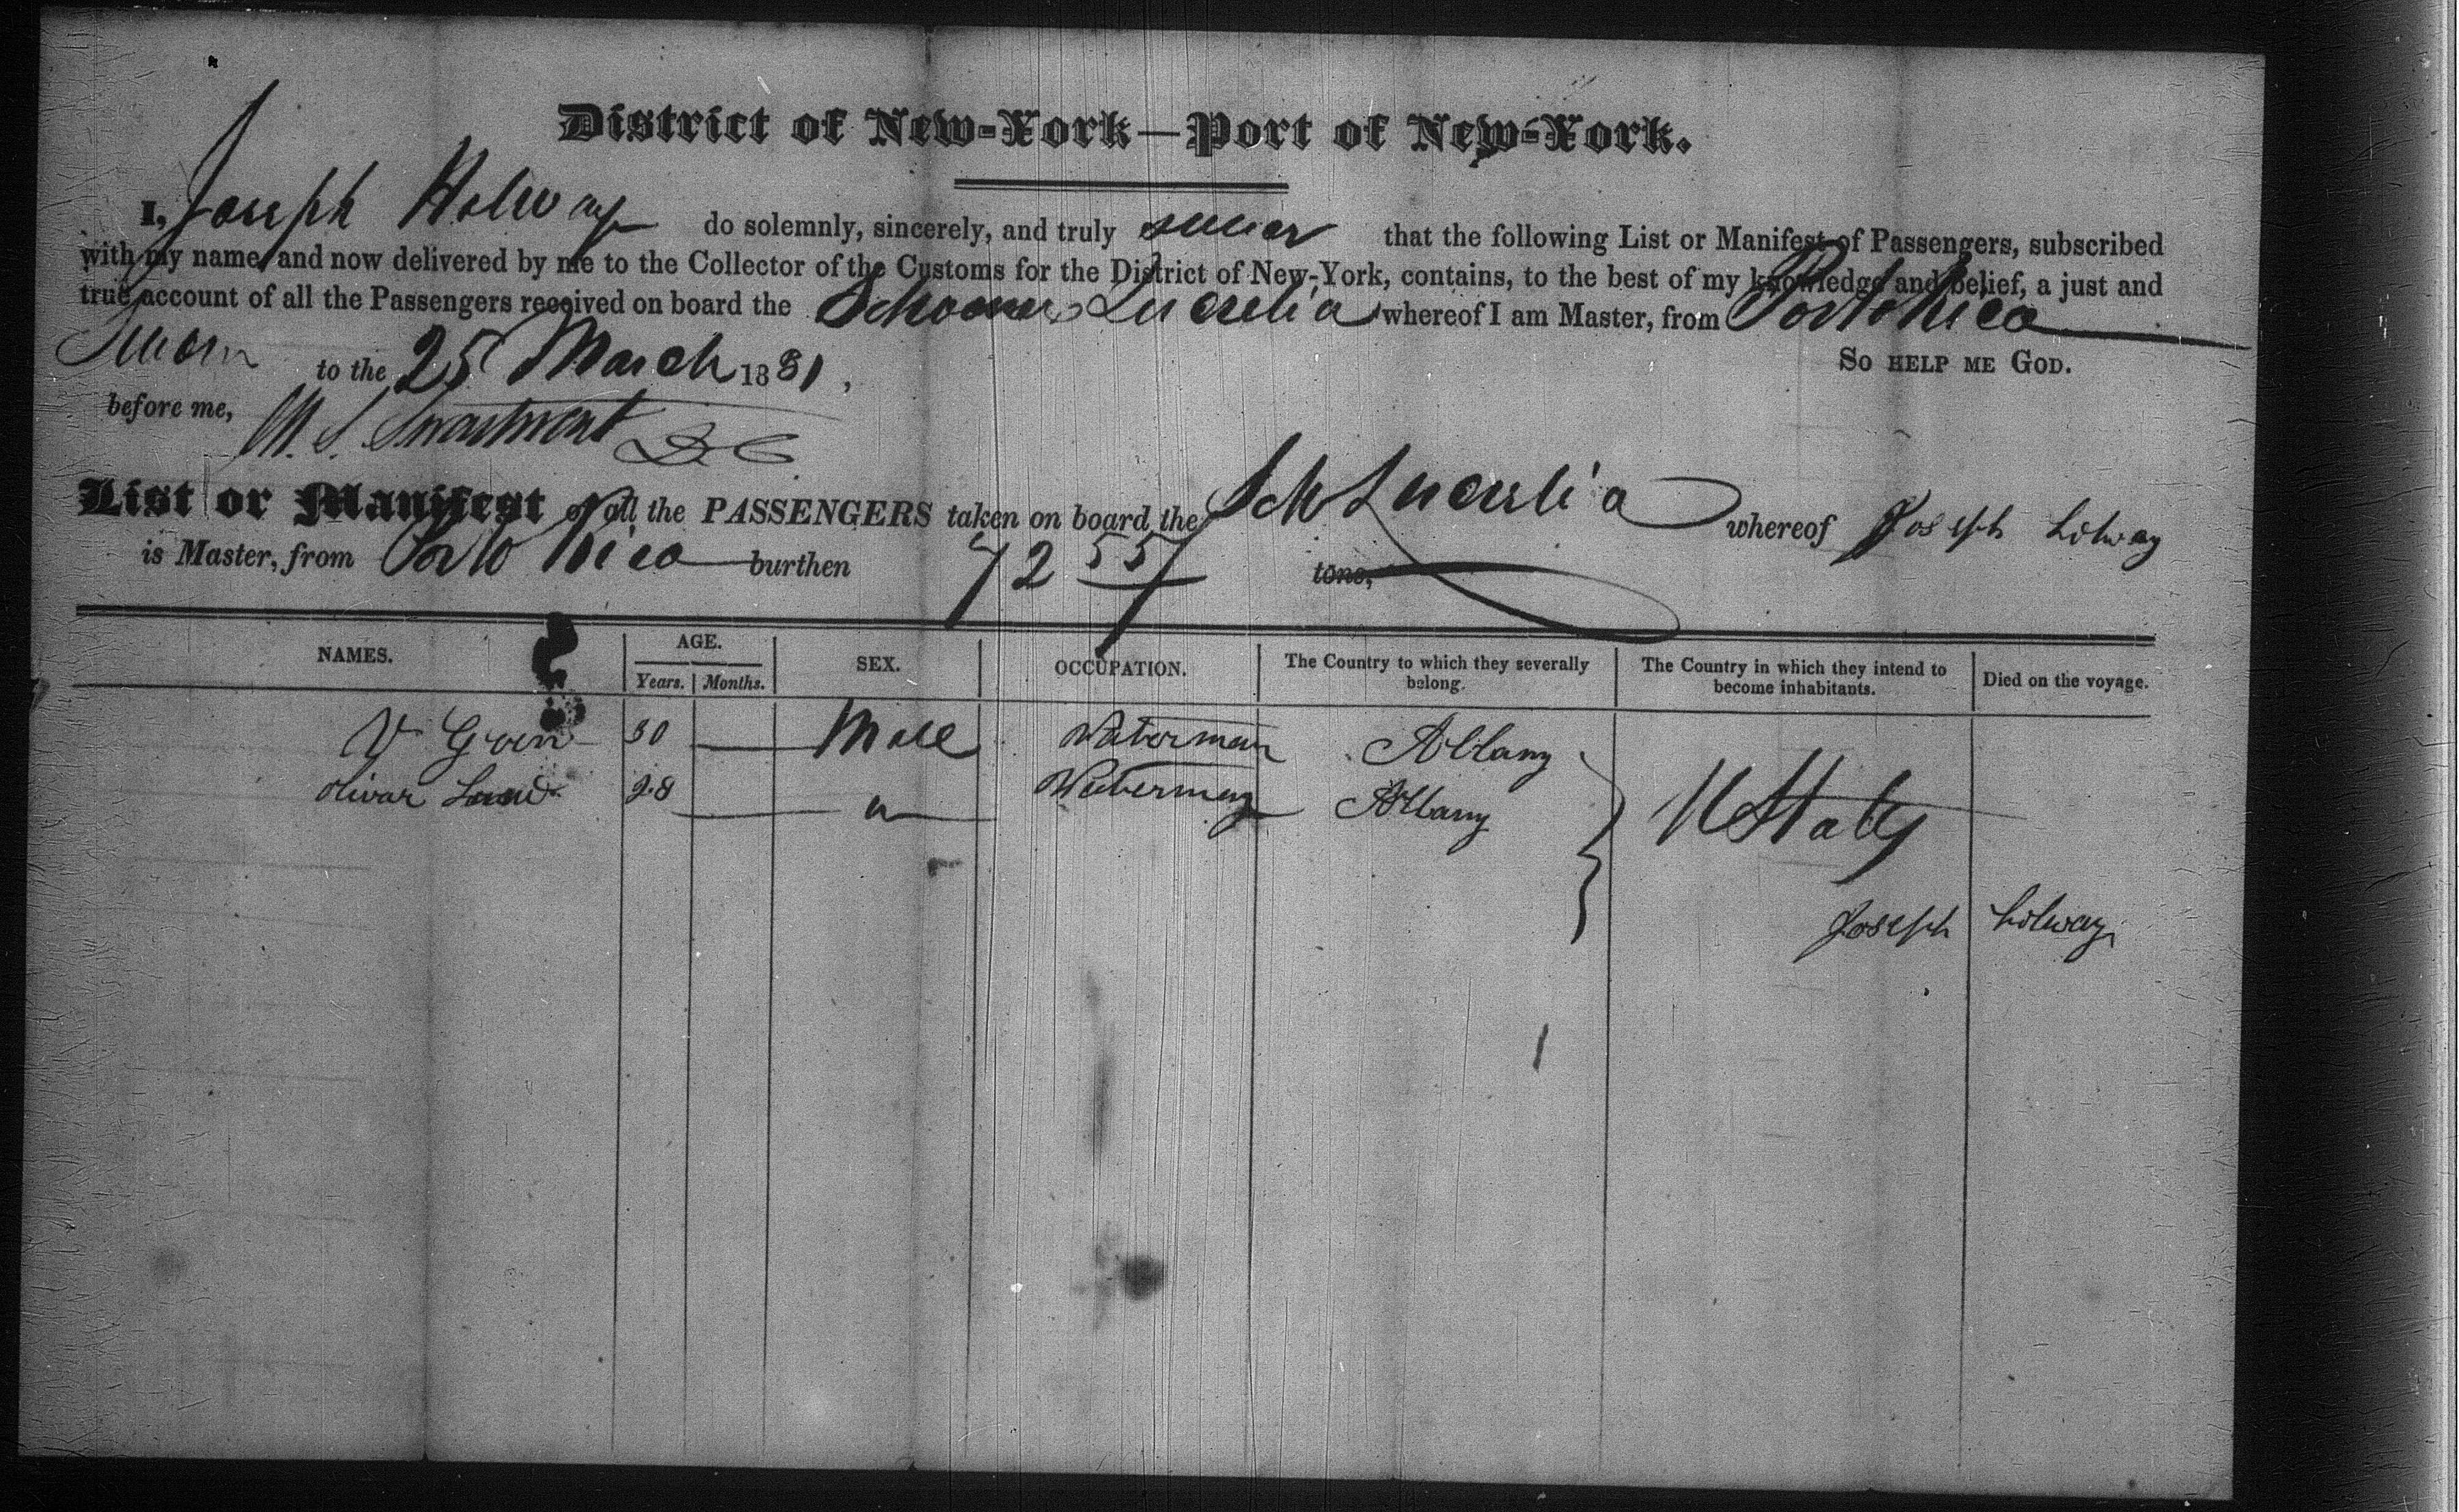 District of New-York—Port of New-York.
I, Joseph Holway do solemnly, sincerely, and truly swear that the following List or Manifest of Passengers, subscribed
with my name, and now delivered by me to the Collector of the Customs for the District of New-York, contains, to the best of my knowledge and belief, a just and
true account of all the Passengers received on board the Schooner Lucrelia whereof I am Master, from Porto Rico
Sworn to the 25 March 1831. So help me God.
before me, M. S. Swartwout D C
List or Manifest of all the PASSENGERS taken on board the Sch Lucrelia whereof Joseph holway
is Master, from Porto Rico burthen 72 55/ tons,
NAMES. AGE. Years. Months. SEX. OCCUPATION. The Country to which they severally belong. The Country in which they intend to become inhabitants. Died on the voyage.
V Goen 30 Male Waterman Albany
olivar 28 " Waterman Albany
U States
Joseph holway